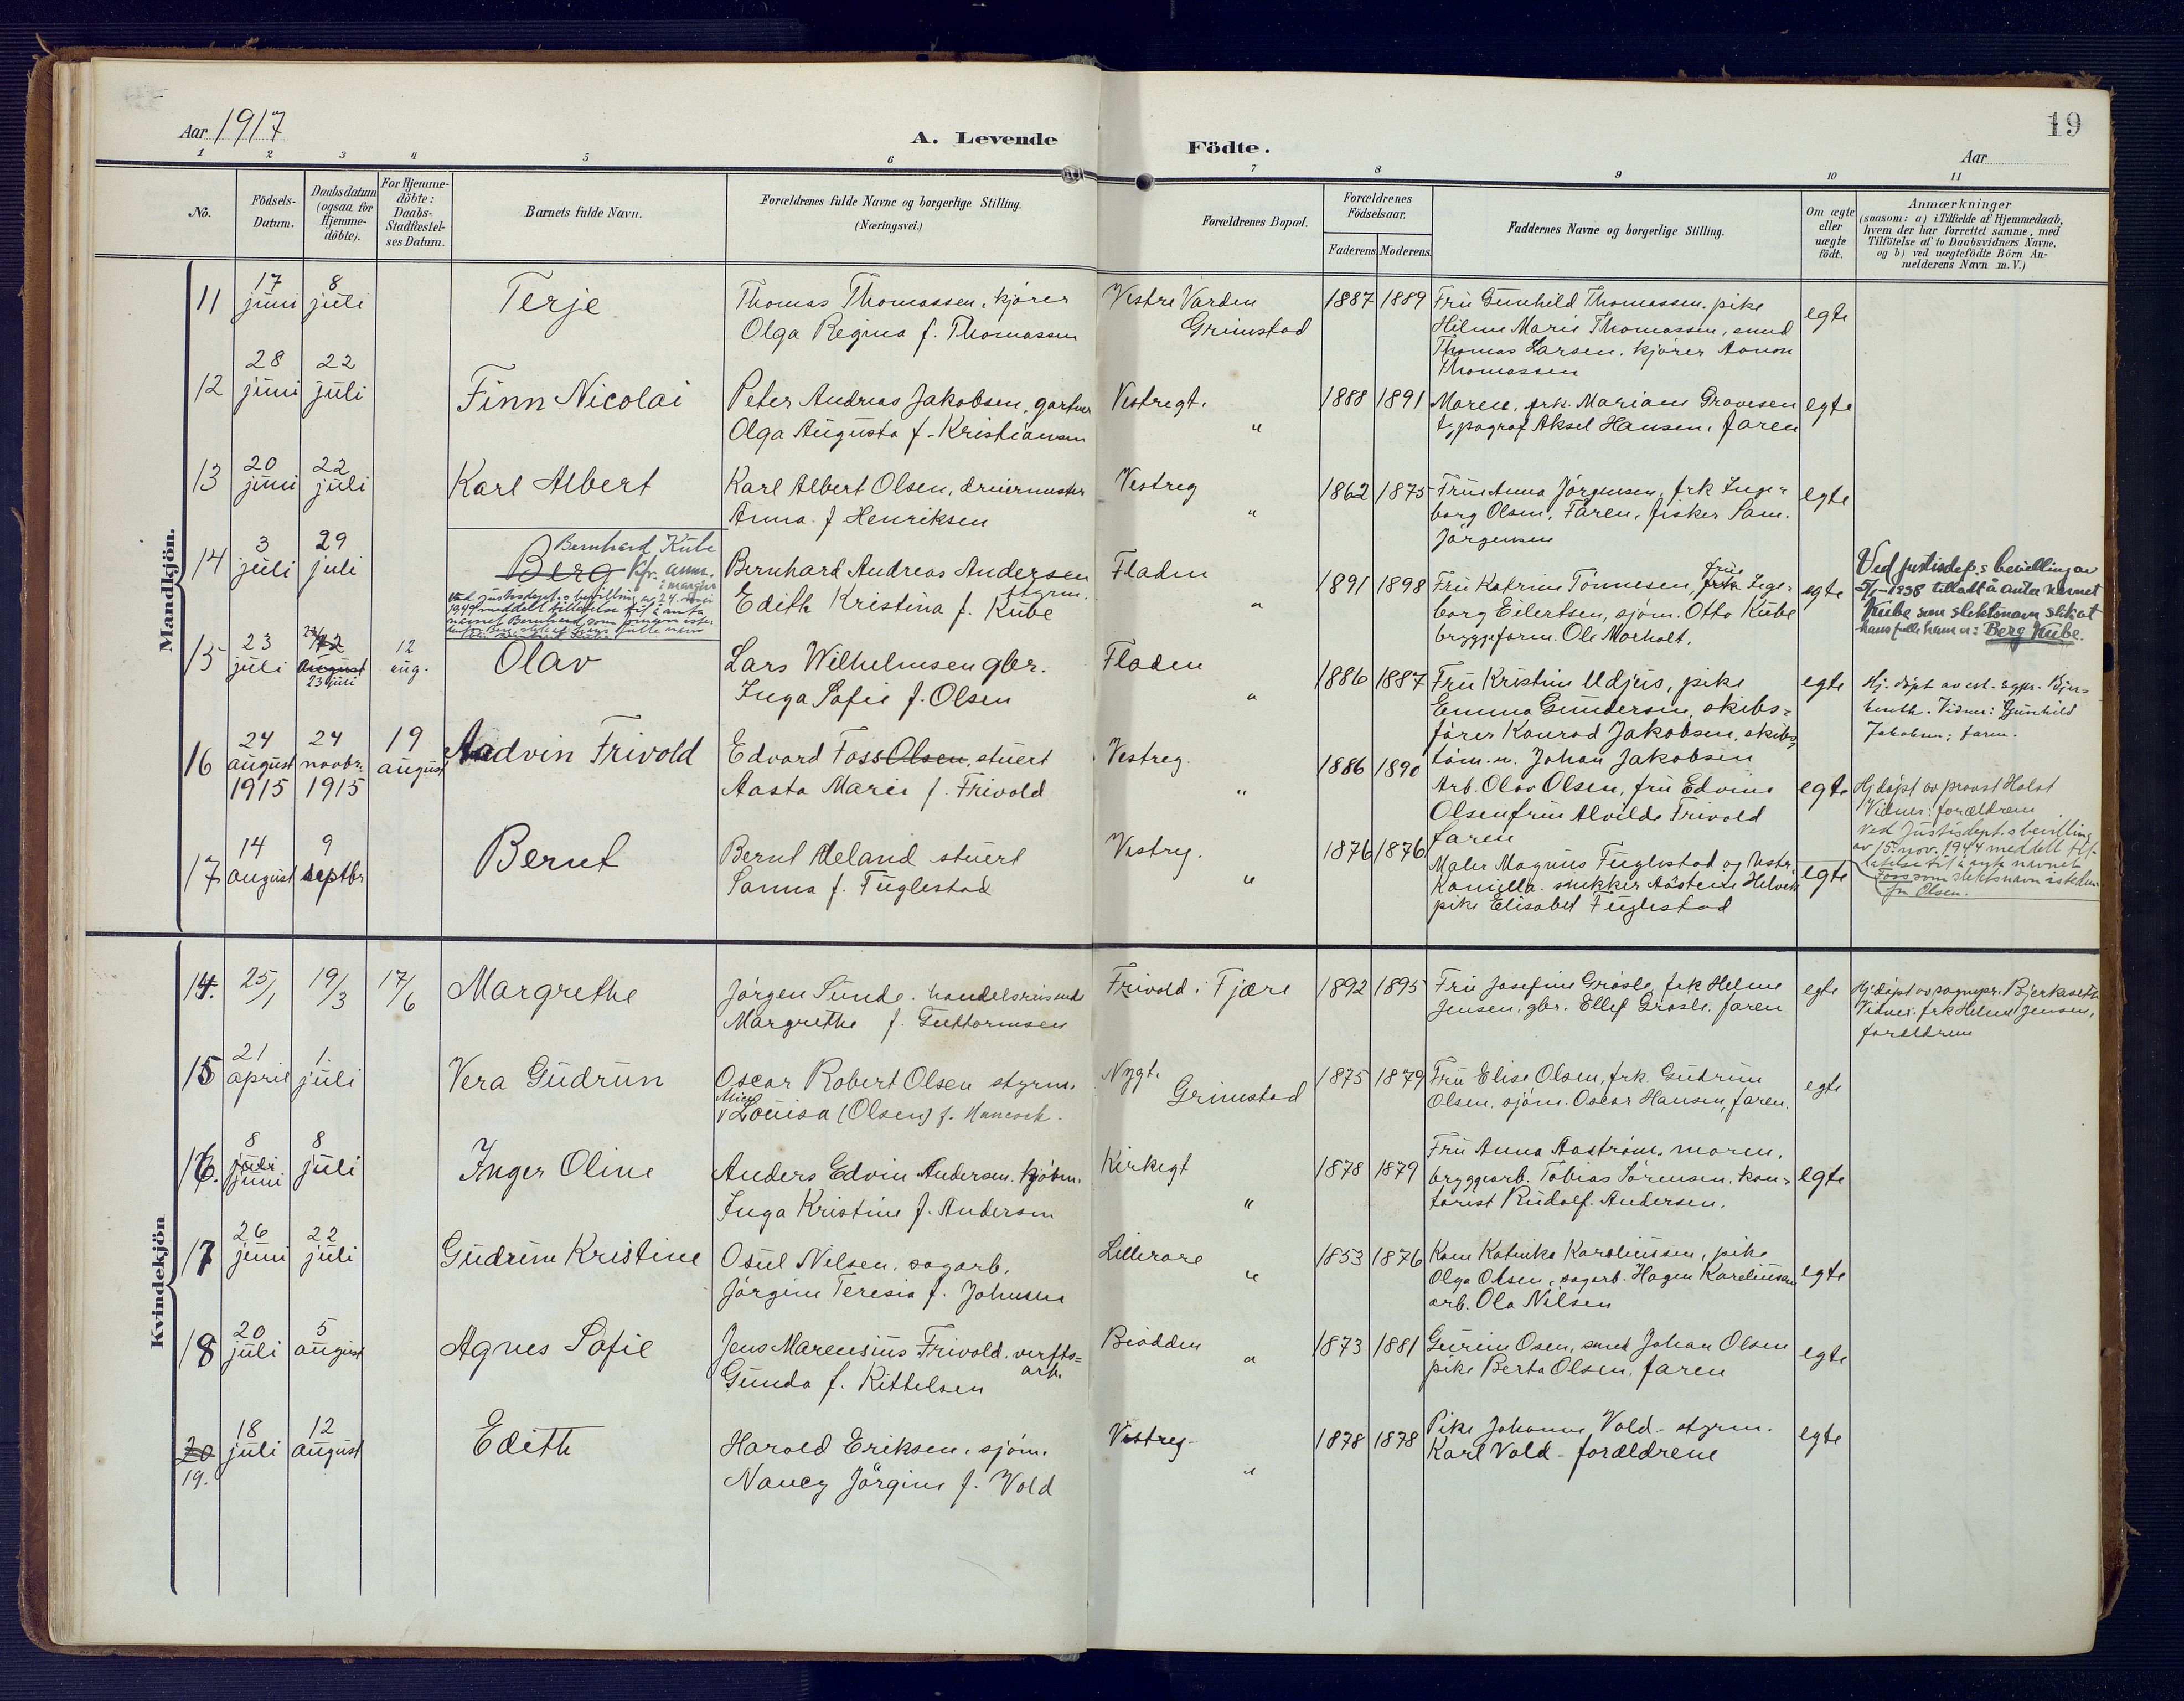 19
Aar 1917
A. Levende Födte.
Aar
1 2 3 4 5 6 7 8 9 10 11
No.
Födsels-Datum.
Daabsdatum (ogsaa for Hjemme-döbte).
For Hjemme-döbte: Daabs-Stadfæstel-ses Datum.
Barnets fulde Navn.
Forældrenes fulde Navne og borgerlige Stilling.
(Næringsvei.)
Forældrenes Bopæl.
Forældrenes Födselsaar.
Faderens Moderens
Faddernes Navne og borgerlige Stilling.
Om ægte eller uægte födt.
Anmærkninger
(saasom: a) i Tilfælde af Hjemmedaab,
hvem der har forrettet samme, med
Tilföielse af to Daabsvidners Navne,
og b) ved uægtefödte Börn An-
melderens Navn m. V.)
Mandkjön.
11 17 juni 8 juli Terje
Thomas Thomassen, kjører
Olga Regina f. Thomassen
Vestre Varden
Grimstad
1887 1889
Fru Gunhild Thomassen, pike
Hilma Marie Thomassen, smed
Thomas Larsen, kjører Aanon
Thomassen
egte
12 28 juni 22 juli Finn Nicolai
Peter Andreas Jakobsen, gartner
Olga Augusta f. Kristiansen
Vestregt.
"
1888 1891
Moren, frk. Mariane
typograf Aksel Hansen, faren
egte
13 20 juni 22 juli Karl Albert
Karl Albert Olsen, dreiermester
Anna f. Henriksen
Vestreg
"
1862 1875
Fru Anna Jörgensen, frk Inge-
borg Olsen, Faren, fisker Sam.
Jörgensen
egte
14 3 juli 29 juli Berg
Bernhard Kube
Kfr. anm.
i margin
Ved Justisdept.s bevilling av 24.
1949 meddelt tillatelse til å anta
navnet Bernhard som fornavn
Bernhard Andreas Andersen
styrm.
Edith Kristina f. Kube
Fladen
"
1891 1898
Fru Katrine Tönnesen, fru Inge-
borg Eilertsen, sjøm. Otto Kube
bryggeform. Ole Morholt.
egte
Ved justisdep.s bevilling av
5/1-1938 tilladt å anta navnet
Kube som slektsnavn slik at
hans fulle navn er: Berg Kube.
15 23 juli 12 august 23 juli 12 aug. Olav
Lars Wilhelmsen gbr.
Inga Sofie f. Olsen
Fladen
"
1886 1887
Fru Kristine Udjus, pike
Emma Gundersen, skibs-
fører Konrad Jakobsen, skibs-
tøm.m. Johan Jakobsen
egte
Hj. döpt av
Vidner: Gunhild
Jakobsen, faren.
16 24 august 1915 24 novbr. 1915 19 august Aadvin Frivold
Edvard Foss Olsen, stuert
Aasta Marie f. Frivold
Vestreg.
"
1886 1890
Arb. Olav Olsen, fru Edvine
Olsen fru Alvilde Frivold
faren
egte
Hj döpt av provst Holst
Vidner: forældrene
Ved Justisdept.s bevilling
av 15. nov. 1944 meddelt til-
latelse til å anta navnet
Foss som slektsnavn isteden-
for Olsen.
17 14 august 9 septbr Bernt
Bernt Æland stuert
Sanna f. Fuglestad
Vestreg.
"
1876 1876
Maler Magnus Fuglestad og hustr.
Kamilla. snekker Aösten Helvik
pike Elisabet Fuglestad
egte
Kvindekjön
14. 25/1 19/3 17/6 Margrethe
Jörgen Sunde. handelsreisende
Margrethe f. Guttormsen
Frivold i Fjære
1892 1895
Fru Josefine Grøsle, frk Helene
Jensen, gbr. Ellef Grøsle, faren
egte
Hj. döpt av sognepr. Bjerkseth
Vidner: frk Helene Jensen,
forældrene
15 21 april 1. juli Vera Gudrun
Oscar Robert Olsen styrm.
Alice
Louisa (Olsen) f. Hancock.
Nygt.
Grimstad
1875 1879
Fru Elise Olsen, frk. Gudrun
Olsen, sjøm. Oscar Hansen, faren.
egte
16. 8 juli juni 8 juli Inger Oline
Anders Edvin Andersen. kjöbm.
Inga Kristine f. Andersen
Kirkegt
"
1878 1879
Fru Anna Aaström. moren.
bryggearb. Tobias Sörensen. kon-
torist Rudolf. Andersen.
egte
17 26 juni 22 juli Gudrun Kristine
Osul Nilsen. sagarb.
Jörgine Teresia f. Johnsen
Lillerare
"
1853 1876
Kone Katinka Karoliussen, pike
Olga Olsen, sagarb. Hagen Karoliussen
arb. Ola Nilsen
egte
18 20 juli 5 august Agnes Sofie
Jens Marensius Frivold. verfts-
arb.
Gunda f. Kittelsen
Biodden
"
1873 1881
Gurine Osen, smed Johan Olsen
pike Berta Olsen, faren
egte
20 19. 18 juli 12 august Edith
Harald Eriksen. sjöm.
Nancy Jörgine f. Vold
Vestreg-
"
1878 1878
Pike Johanne Vold - styrm.
Karl Vold - forældrene
egte